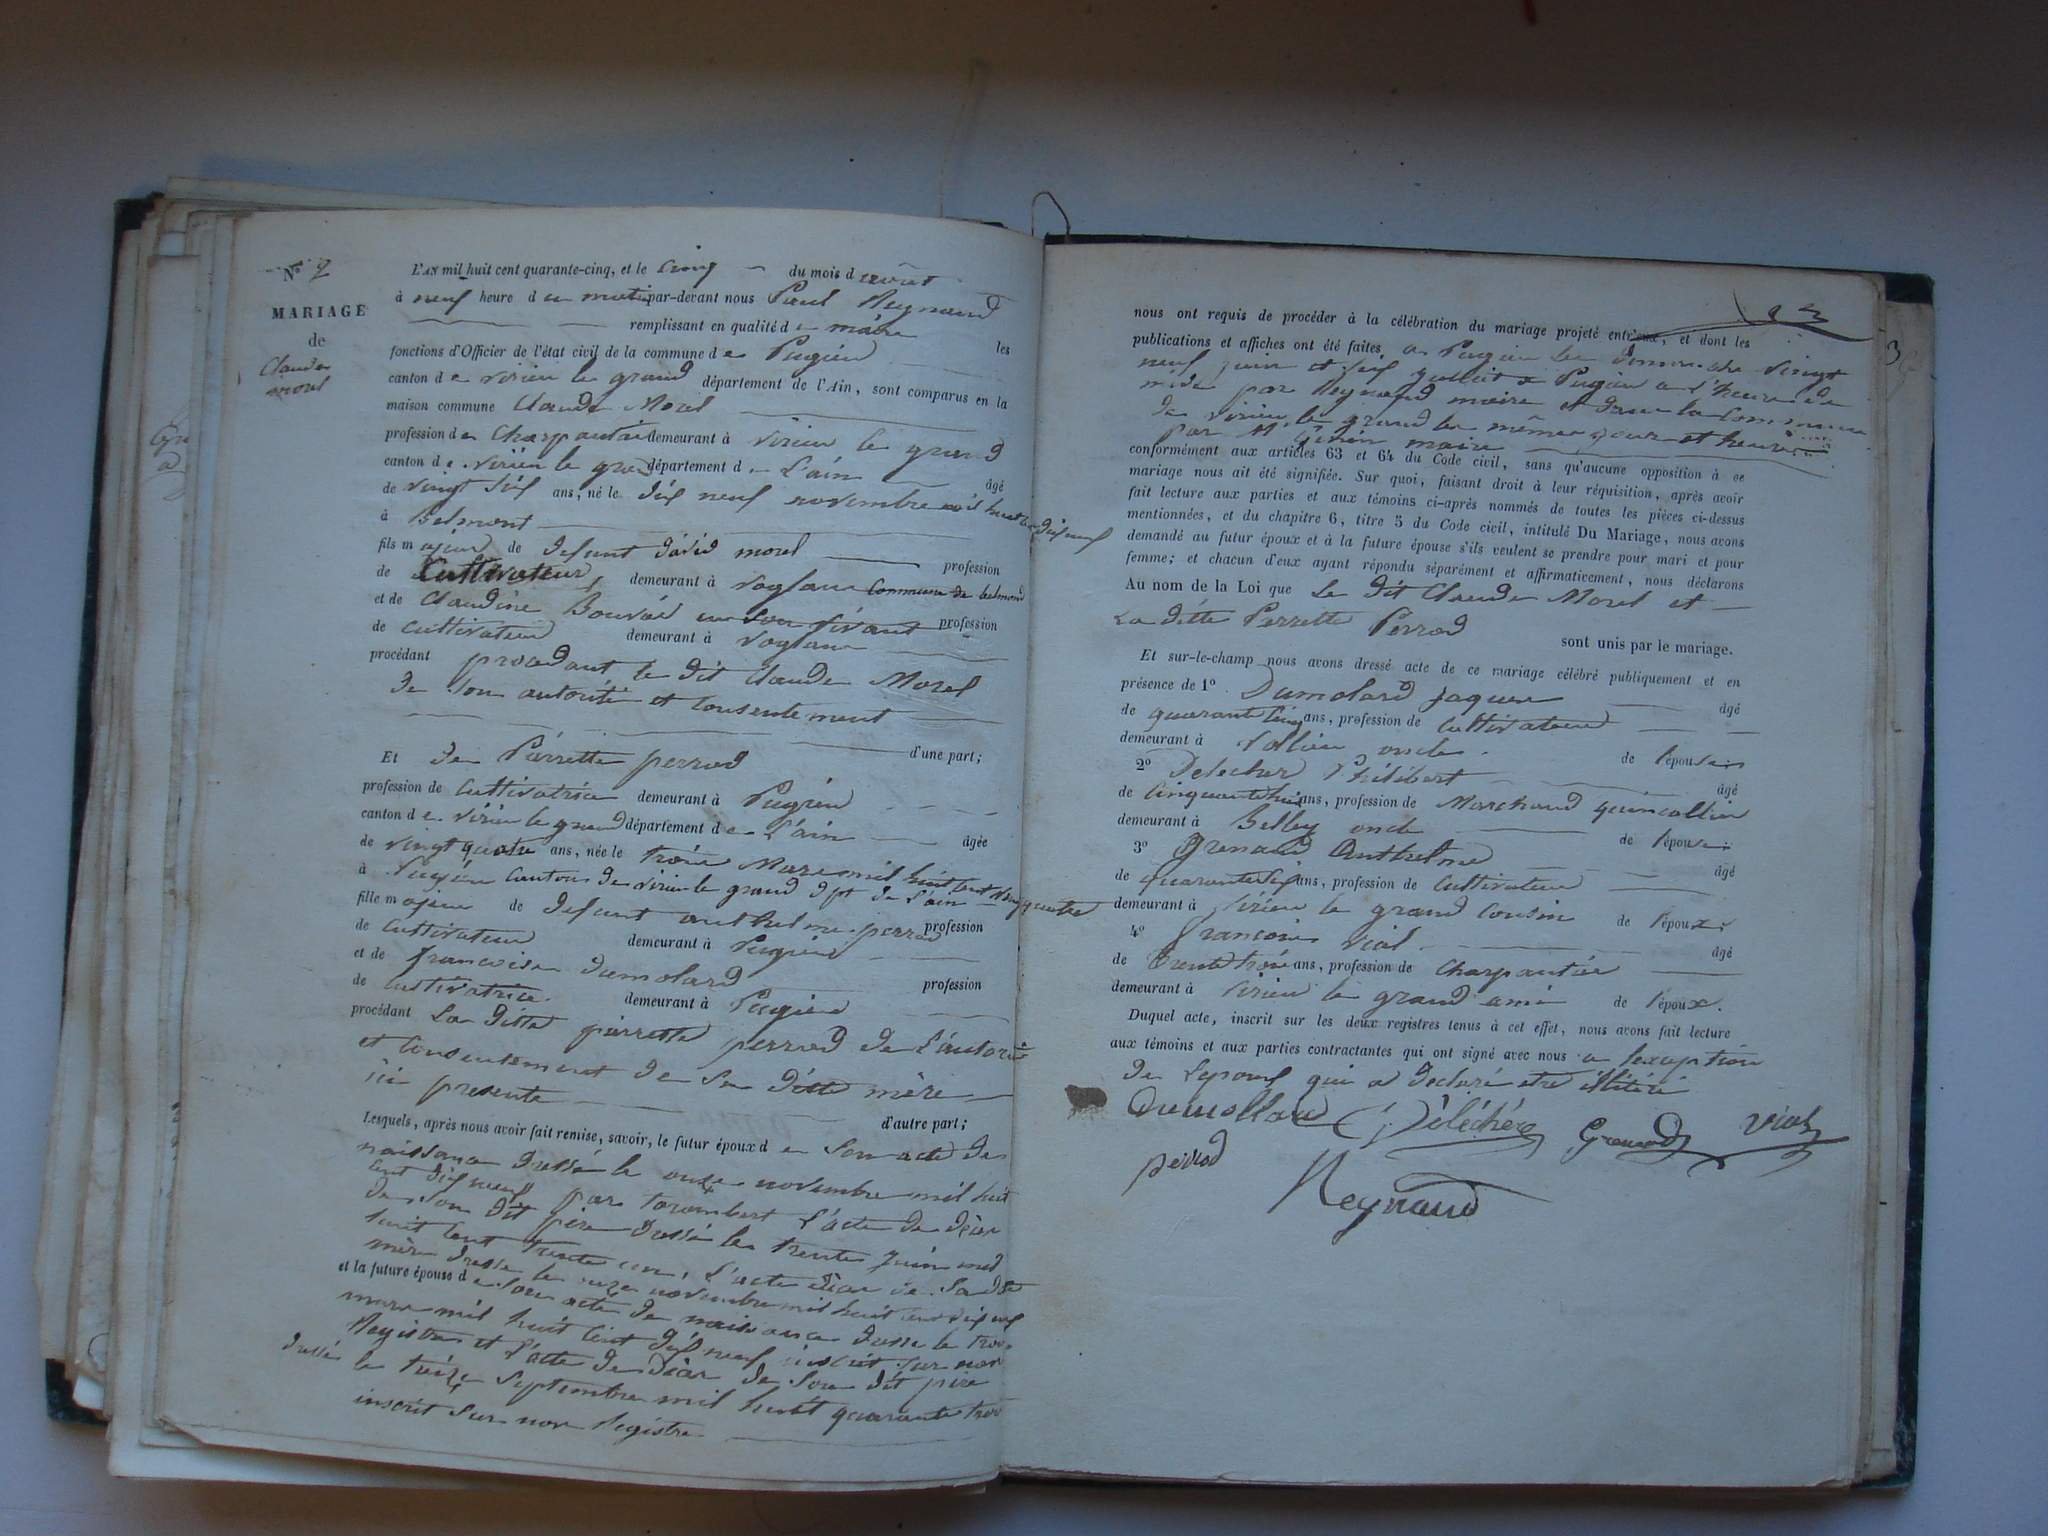 N° 2
MARIAGE
de
Claude
morel
L'AN mil huit cent quarante-cinq, et le cinq du mois d août
à neuf heure d u matin par-devant nous Paul Reynaud
remplissant en qualité d e maire les
fonctions d'Officier de l'état civil de la commune d e Pugieu
canton d e virieu le grand département de l'Ain, sont comparus en la
maison commune Claude Morel
profession de Charpantier demeurant à virieu le grand
canton d e virieu le grand département d e L'ain âgé
de vingt six ans, né le dix neuf novembre mil huit cent dixneuf
à Belmont
fils majeur de defunt david morel profession
de Cultivateur, demeurant à voglan commune de belmond
et de Claudine en son vivant profession
de cultivateur demeurant à voglan
procédant procedant le dit Claude Morel
de son autorité et consentement
d'une part;
Et de Pierrette perrod
profession de Cultivatrice demeurant à Pugieu
canton d e virieu le grand département d e L'ain âgée
de vingt quatre ans, née le trois Mars mil huit cent
à Pugieu canton de virieu le grand dpt de L'ain
fille majeure de defunt anthelme perrod profession
de Cultivateur demeurant à Pugieu
et de francoise dumolard profession
de Cultivatrice demeurant à Pugieu
procédant La ditte pierrette perrod de L'autorité
et consentement de sa ditte mère
ici presente
d'autre part;
Lesquels, après nous avoir fait remise, savoir, le futur époux d e son acte de
naissance dressé le onze novembre mil huit
cent dix neuf par L'acte de décès
de son dit père dressé le trente juin mil
huit cent trente L'acte décès de sa dte
mère dressé le onze novembre mil huit cent dix neuf
et la future épouse d e son acte de naissance dressé le trois
mars mil huit cent dix neuf inscrit sur nos
Registres et L'acte de décès de son dit père
dressé le treize septembre mil huit quarante trois
inscrit sur nos Registre
nous ont requis de procéder à la célébration du mariage projeté entr'eux, et dont les
publications et affiches ont été faites, a Pugieu les dimanche vingt
neuf juin et six juillet a Pugieu a l'heure de
midi par Reynaud maire et dans la commune
de virieu le grand les mêmes jours et heures
par M maire
conformément aux articles 63 et 64 du Code civil, sans qu'aucune opposition à ce
mariage nous ait été signifiée. Sur quoi, faisant droit à leur réquisition, après avoir
fait lecture aux parties et aux témoins ci-après nommés de toutes les pièces ci-dessus
mentionnées, et du chapitre 6, titre 5 du Code civil, intitulé Du Mariage, nous avons
demandé au futur époux et à la future épouse s'ils veulent se prendre pour mari et pour
femme; et chacun d'eux ayant répondu séparément et affirmativement, nous déclarons
Au nom de la Loi que Le dit Claude Morel et
La ditte Perrette Perrod
sont unis par le mariage.
Et sur-le-champ nous avons dressé acte de ce mariage célébré publiquement et en
présence de 1° Dumolard Jaques âgé
de quarante cinq ans, profession de Cultivateur
demeurant à oncle de l'épouse
2° Philibert âgé
de Cinquante huit ans, profession de Marchand quincallier
demeurant à Belley oncle de l'épouse
3° Grenaud Anthelme âgé
de quarante six ans, profession de Cultivateur
demeurant à virieu le grand cousin de l'époux
4° francois vial âgé
de trente trois ans, profession de Charpantier
demeurant à virieu le grand ami de l'époux.
Duquel acte, inscrit sur les deux registres tenus à cet effet, nous avons fait lecture
aux témoins et aux parties contractantes qui ont signé avec nous a lexception
de Lepoux qui a declaré etre illitéré
Dumollard Déléchéro Grenaud Vial
perrod
Reynaud